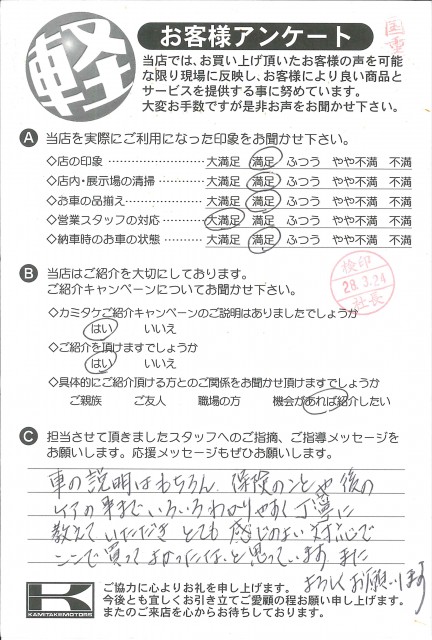 軽
お客様アンケート
当店では、お買い上げ頂いたお客様の声を可能
な限り現場に反映し、お客様により良い商品と
サービスを提供する事に努めています。
大変お手数ですが是非お声をお聞かせ下さい。
A 当店を実際にご利用になった印象をお聞かせ下さい。
◇店の印象 …………………… 大満足 満足 ふつう やや不満 不満
◇店内・展示場の清掃 ………… 大満足 満足 ふつう やや不満 不満
◇お車の品揃え ……………… 大満足 満足 ふつう やや不満 不満
◇営業スタッフの対応 ………… 大満足 満足 ふつう やや不満 不満
◇納車時のお車の状態 ………… 大満足 満足 ふつう やや不満 不満
B 当店はご紹介を大切にしております。
ご紹介キャンペーンについてお聞かせ下さい。
検印
28.3.24
社長
◇カミタケご紹介キャンペーンのご説明はありましたでしょうか
はい いいえ
◇ご紹介を頂けますでしょうか
はい いいえ
◇具体的にご紹介頂ける方とのご関係をお聞かせ頂けますでしょうか
ご親族 ご友人 職場の方 機会があれば紹介したい
C 担当させて頂きましたスタッフへのご指摘、ご指導メッセージを
お願いします。応援メッセージもぜひお願いします。
車の説明はもちろん、保険のことや後の
ケアの事までいろいろわかりやすく丁寧に
教えていただき とても 感じのよい対応で
ここで買ってよかったな、と思っています。また
よろしくお願いします
K
KAMITAKEMOTORS
ご協力に心よりお礼を申し上げます。
今後とも宜しくお引き立てご愛顧の程お願い申し上げます。
またのご来店を心からお待ちしております。